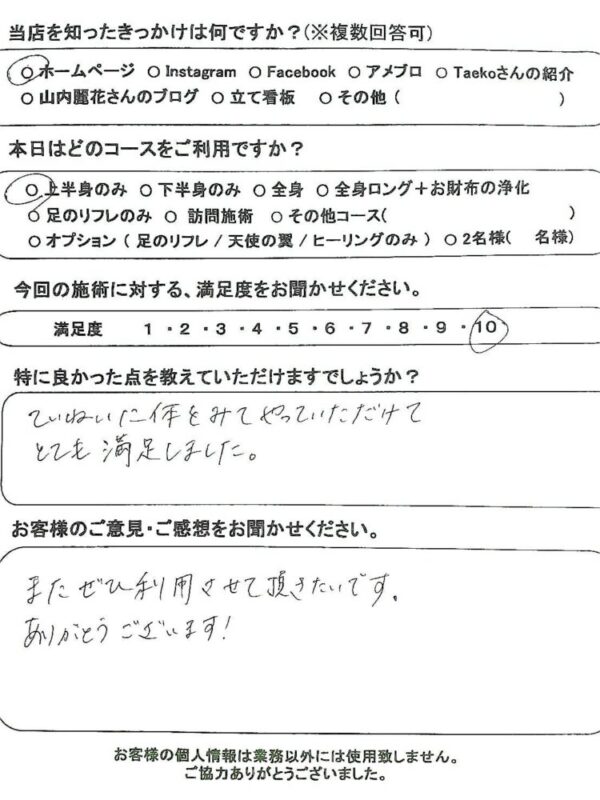 当店を知ったきっかけは何ですか?(※複数回答可)
○ホームページ ○Instagram ○Facebook ○アメブロ ○Taekoさんの紹介
○山内麗花さんのブログ ○立て看板 ○その他( )
本日はどのコースをご利用ですか?
○上半身のみ ○下半身のみ ○全身 ○全身ロング+お財布の浄化
○足のリフレのみ ○ 訪問施術 ○その他コース( )
○オプション( 足のリフレ / 天使の翼 / ヒーリングのみ ) ○2名様( 名様)
今回の施術に対する、満足度をお聞かせください。
満足度 1・2・3・4・5・6・7・8・9・10
特に良かった点を教えていただけますでしょうか?
ていねいに体をみてやっていただけて
とても満足しました。
お客様のご意見・ご感想をお聞かせください。
またぜひ利用させて頂きたいです。
ありがとうございます!
お客様の個人情報は業務以外には使用致しません。
ご協力ありがとうございました。